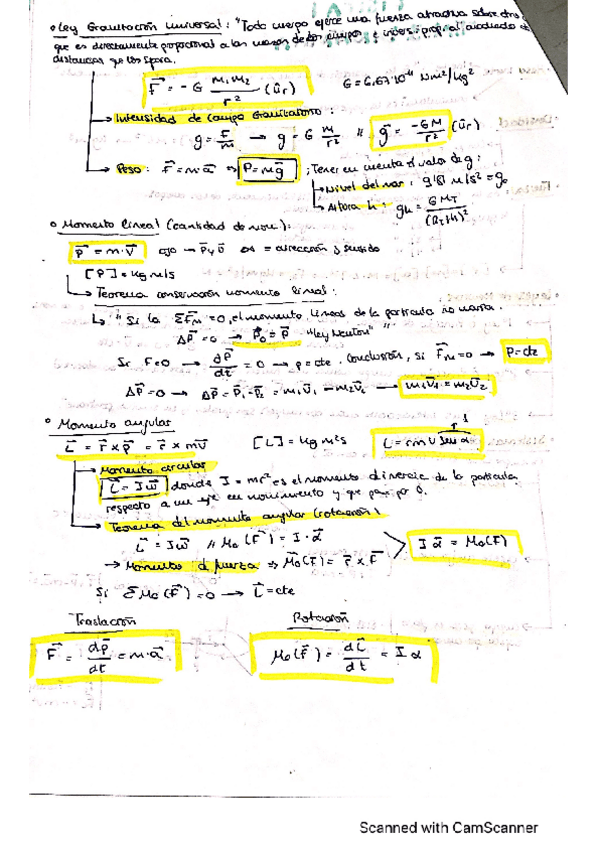 • Ley Gravitación Universal: "Todo cuerpo ejerce una fuerza atractiva sobre otro
que es directamente proporcional a las masas de los cuerpos e invers. propor al cuadrado
distancias que los separa.
F⃗ = -G m₁m₂/r² (ûr)   G = 6,67·10⁻¹¹ Nm²/kg²
→ Intensidad de Campo Gravitatorio:
g = F/m → g = G M/r² // g⃗ = -GM/r² (ûr)
→ Peso: F⃗ = m·a⃗ ⇒ P = mg⃗ ; Tener en cuenta el valor de g:
→ Nivel del mar: 9'81 m/s² = g₀
→ Altura h: gh = GMT/(RT+h)²
• Momento lineal (cantidad de mov.):
p⃗ = m·v⃗   ojo → p⃗ y v⃗ = dirección y sentido
[P] = kg m/s
→ Teorema conservación momento lineal:
↳ "Si la ΣFM = 0, el momento lineal de la partícula no varía.
Δp⃗ = 0 → p⃗₀ = p⃗ "1ªley Newton" "
Si F=0 → dp⃗/dt = 0 → p = cte. Conclusión, si F⃗M = 0 → P = cte
Δp⃗ = 0 → Δp⃗ = p⃗₁ - p⃗₂ = m₁v⃗₁ - m₂v⃗₂ → m₁v⃗₁ = m₂v⃗₂
• Momento angular
L⃗ = r⃗ x p⃗ = r⃗ x mv⃗   [L] = kg m²s   L = rmv sen α
→ Momento circular
L⃗ = Iω⃗ donde I = mr² es el momento d inercia de la partícula
respecto a un eje en movimiento y que pasa por O.
→ Teorema del momento angular (rotación)
L⃗ = Iω⃗ // Mo(F⃗) = I·α⃗   I α⃗ = Mo(F)
→ Momento d fuerza ⇒ Mo(F) = r⃗ x F⃗
Si ΣMo(F⃗) = 0 → L⃗ = cte
Traslación   Rotación
F⃗ = dp⃗/dt = m·a⃗   Mo(F⃗) = dL⃗/dt = I α
Scanned with CamScanner